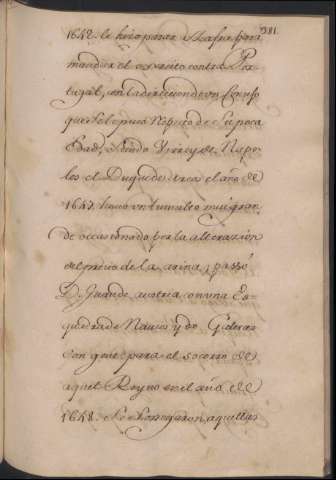 381.
1642. le hizo pasar a Zafra para
mandar el exercito contra Por-
tugal, en la direccion de un Consejo
que se le puso respecto de su poca
Edad, siendo Virrey de Napo-
les el Duque de Arcos el año de
1647. huvo un tumulto mui gran-
de occasionado por la alterazion
del precio de la arina; passó
D. Juan de Austria con una Es-
quadra de Navios y de Galeras
con gente para el socorro de
aquel Reyno en el año de
1648. Se sosegaron aquellas